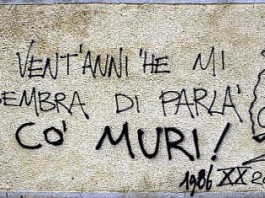 VENT'ANNI 'HE MI
SEMBRA DI PARLA'
CO' MURI!
1986 XX